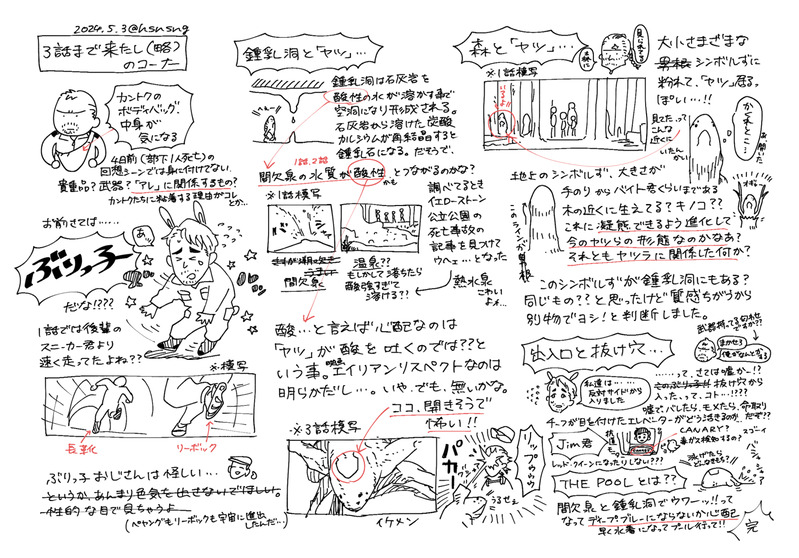 2024.5.3@hsusug
3話まで来たし(略)
のコーナー
カントクの
ボディバッグ、
中身が
気になる
4日前(部下1人死亡)の
回想シーンでは身に付けてない。
貴重品?武器?「アレ」に関係するもの?
カントクたちに執着する理由がコレ
とか…
お前さては……
あ。
ぶりっ子
だな!???
1話では後輩の
スニーカー君より
速く走ってたよね??
※模写
長主化
リーボック
ぶりっ子おじさんは怪しい…
というか、あんまり色気を出さないでほしい。
性的な目で見ちゃうよ
(ペヤングもリーボックも宇宙に進出
したんだ…)
鍾乳洞と「ヤツ」…
鍾乳洞は石灰岩を
酸性の水が溶かす事で
空洞になり形成される。
石灰岩から溶けた炭酸
カルシウムが再結晶すると
鍾乳石になる。だそうで、
1話、2話
間欠泉の水質が酸性
かも
とつながるのかな?
※1話模写
間欠泉
温泉??
もしかして落ちたら
酸強すぎて
溶ける??
調べてるとき
イエローストーン
公立公園の
死亡事故の
記事を見つけて
ウヘェ…となった
熱水泉
こわい
よォ…
酸…と言えば心配なのは
「ヤツ」が酸を吐くのでは??と
いう事。エイリアンリスペクトなのは
明らかだし…。いや、でも、無いかな。
※3話模写
ココ、開きそうで
怖い!!
イケメン
パカー
リップゥゥ
うるせェ
森と「ヤツ」…
見られてる
※1話模写
いるよ!!
見てたって
こんな
近くに
いたんかい
大小さまざまな
男根シンボルずに
紛れて、「ヤツ」居るっ
ぽい…!!
かァどこ…
お開いた
地上のシンボルず、大きさが
手のりからベイト君くらいまである
木の近くに生えてる?キノコ??
これに擬態できるよう進化して
今のヤツらの形態なのかなあ?
それともヤツラに関係した何か?
このラインが男根
このシンボルずが鍾乳洞にもある?
同じもの??と思ったけど質感ちがうから
別物でヨシ!と判断しました。
出入口と抜け穴…
まかせろ
私達は……
反対サイドから
入りました
……って、さては嘘かー!?
抜け穴から
入ったって、コト…!???
嘘で、バレたら、モメたら、命取り
チーフが目を付けたエレベーターがどう活きるのか…だす!?
Jim君
CANARY?
毒ガス検知するの?
スゴーイ
レッド・クイーンになったりしない???
THE POOLとは??
間欠泉と鍾乳洞でウワーッ!!って
なってディープブルーにならないか心配
早く水着になってプール行って!!
完